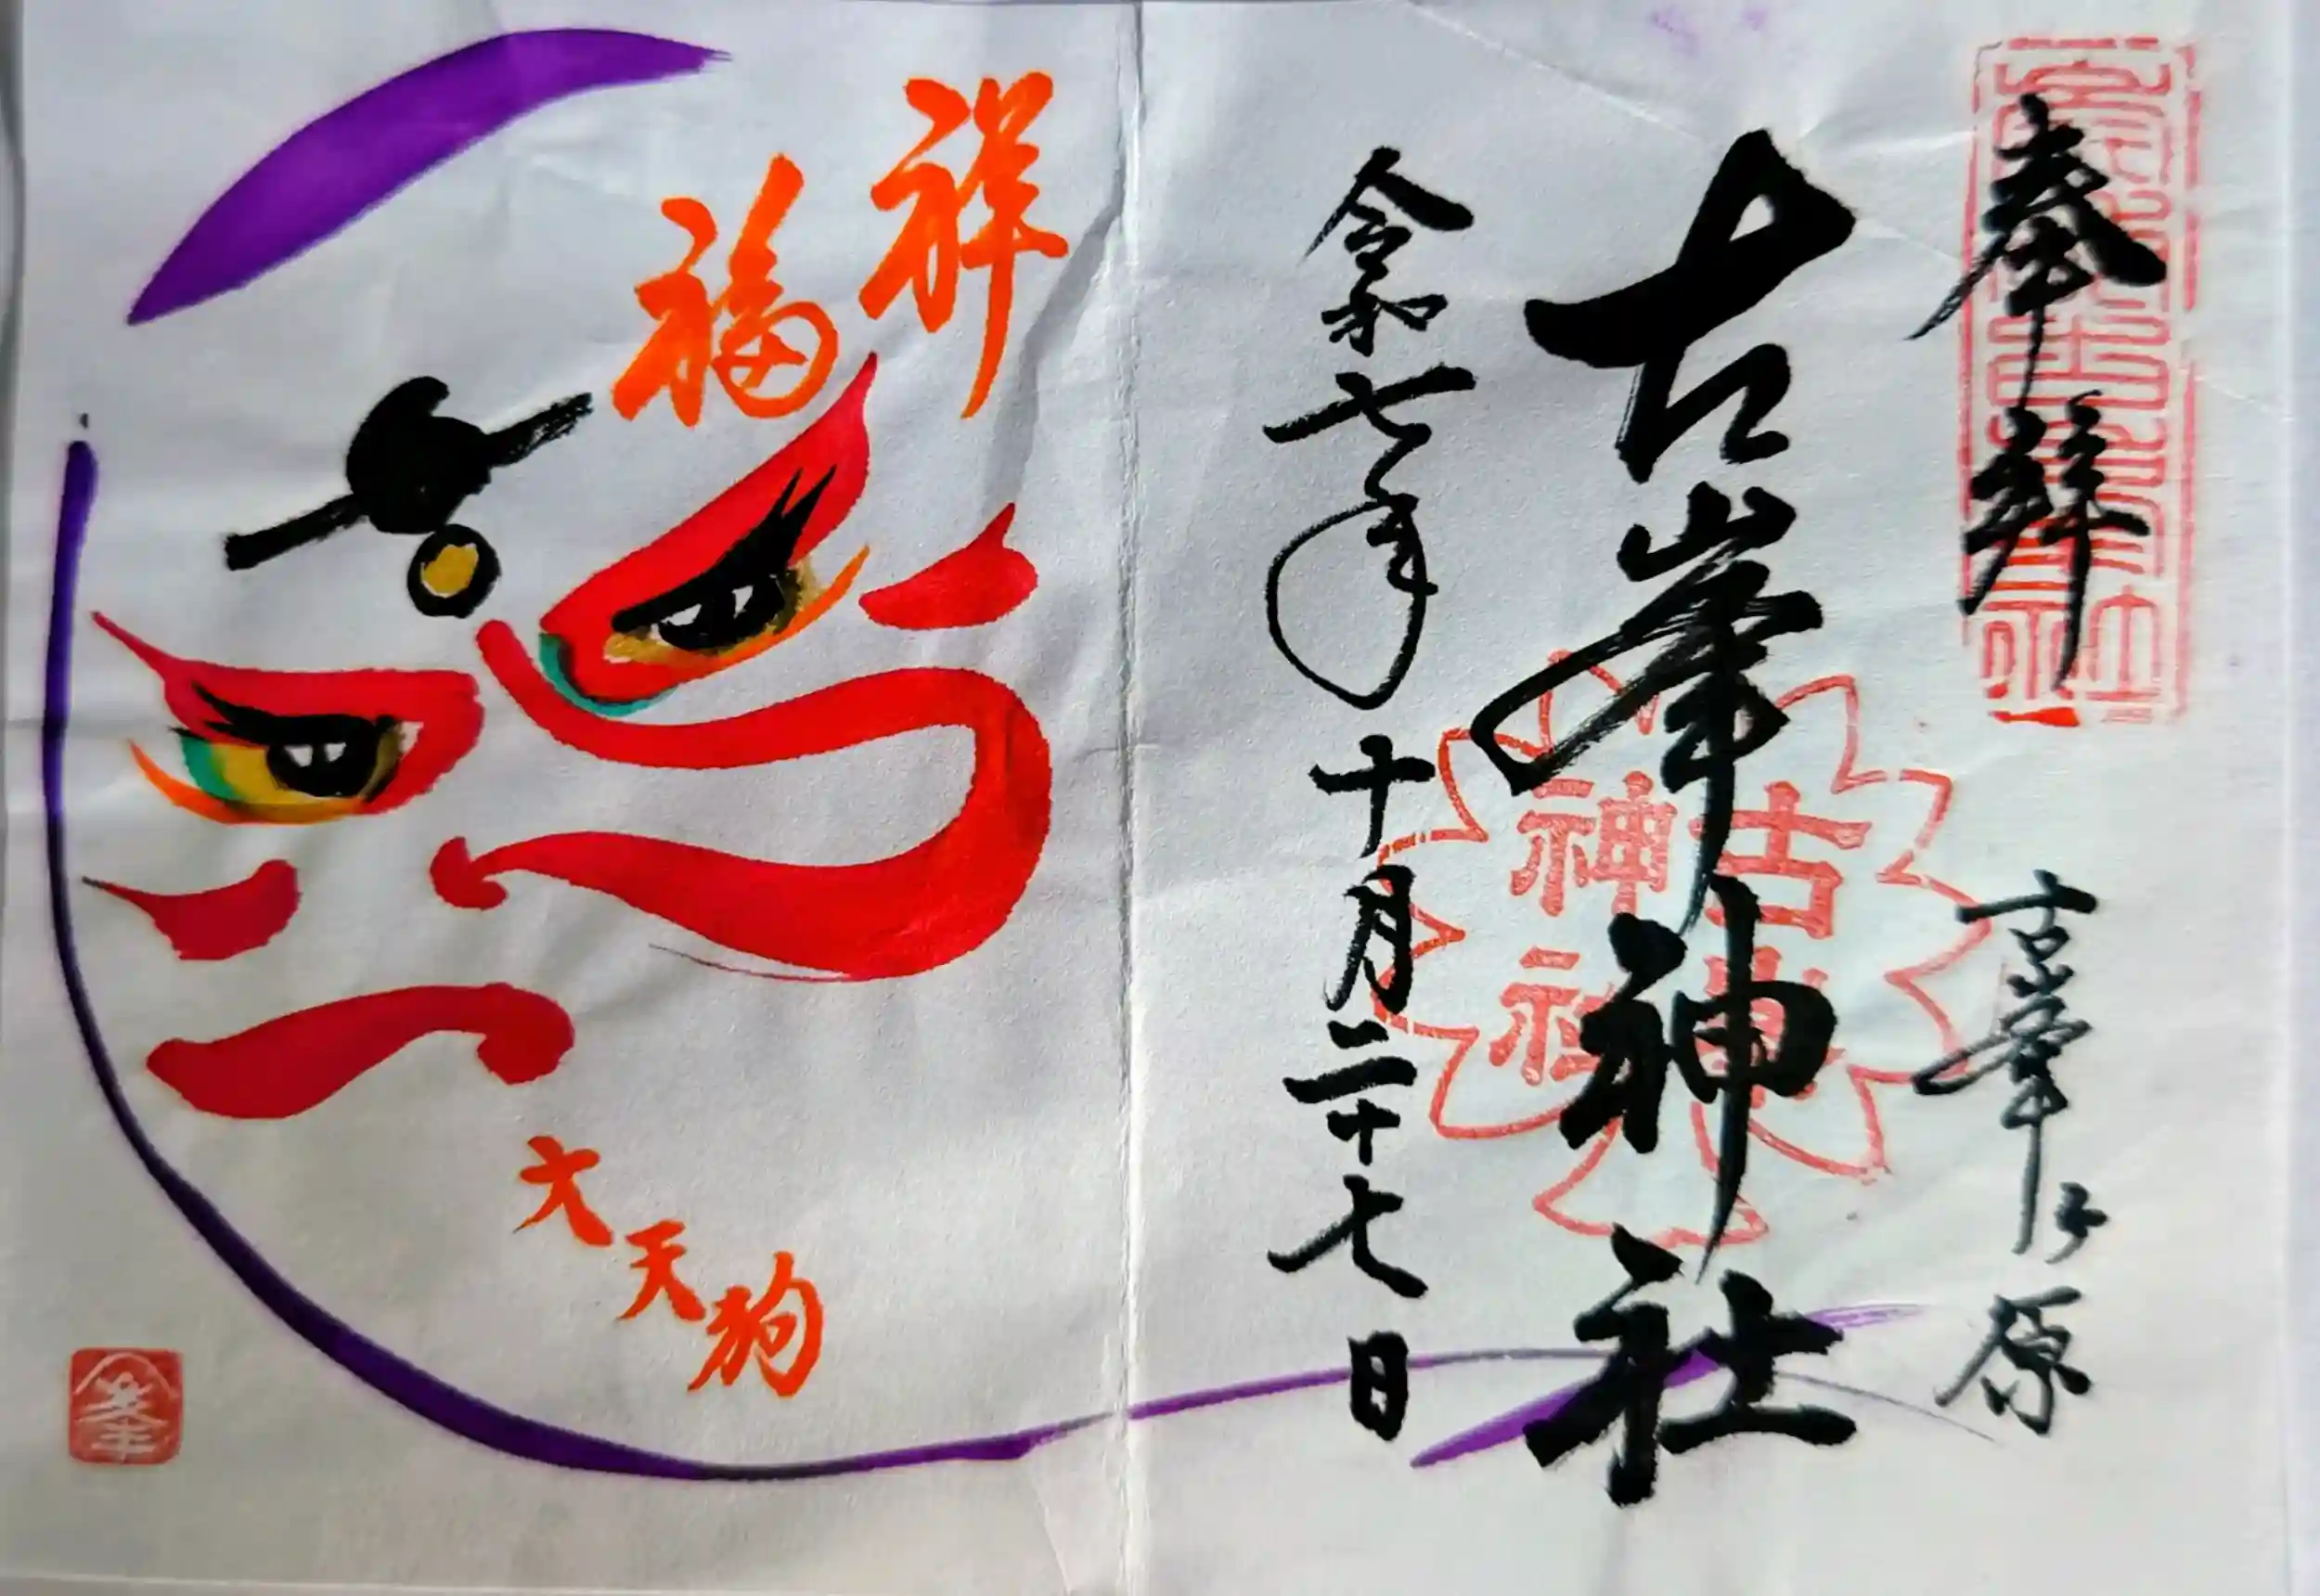 奉拝
古峯ヶ原
古峯神社
古峯神社
令和七年十月二十七日
祥福
大天狗
峯